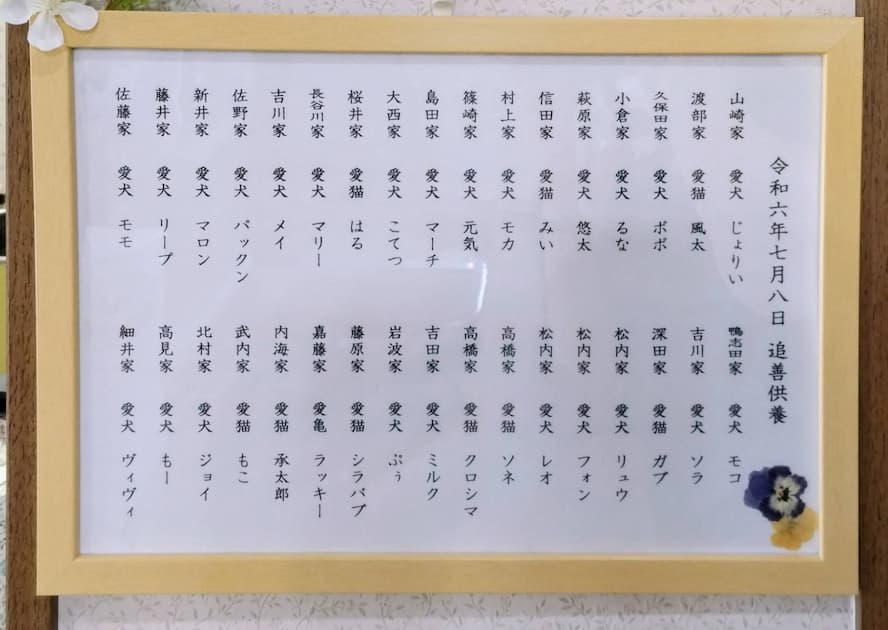 令和六年七月八日 追善供養
山崎家 愛犬 じょりい
渡部家 愛猫 風太
久保田家 愛犬 ボボ
小倉家 愛犬 るな
萩原家 愛犬 悠太
信田家 愛猫 みい
村上家 愛犬 モカ
篠崎家 愛犬 元気
島田家 愛犬 マーチ
大西家 愛犬 こてつ
桜井家 愛猫 はる
長谷川家 愛犬 マリー
吉川家 愛犬 メイ
佐野家 愛犬 パックン
新井家 愛犬 マロン
藤井家 愛犬 リープ
佐藤家 愛犬 モモ
鴨志田家 愛犬 モコ
吉川家 愛犬 ソラ
深田家 愛猫 ガブ
松内家 愛犬 リュウ
松内家 愛犬 フォン
松内家 愛犬 レオ
高橋家 愛猫 ソネ
高橋家 愛猫 クロシマ
吉田家 愛犬 ミルク
岩波家 愛犬 ぷぅ
藤原家 愛猫 シラバブ
嘉藤家 愛亀 ラッキー
内海家 愛猫 承太郎
武内家 愛猫 もこ
北村家 愛犬 ジョイ
高見家 愛犬 もー
細井家 愛犬 ヴィヴィ